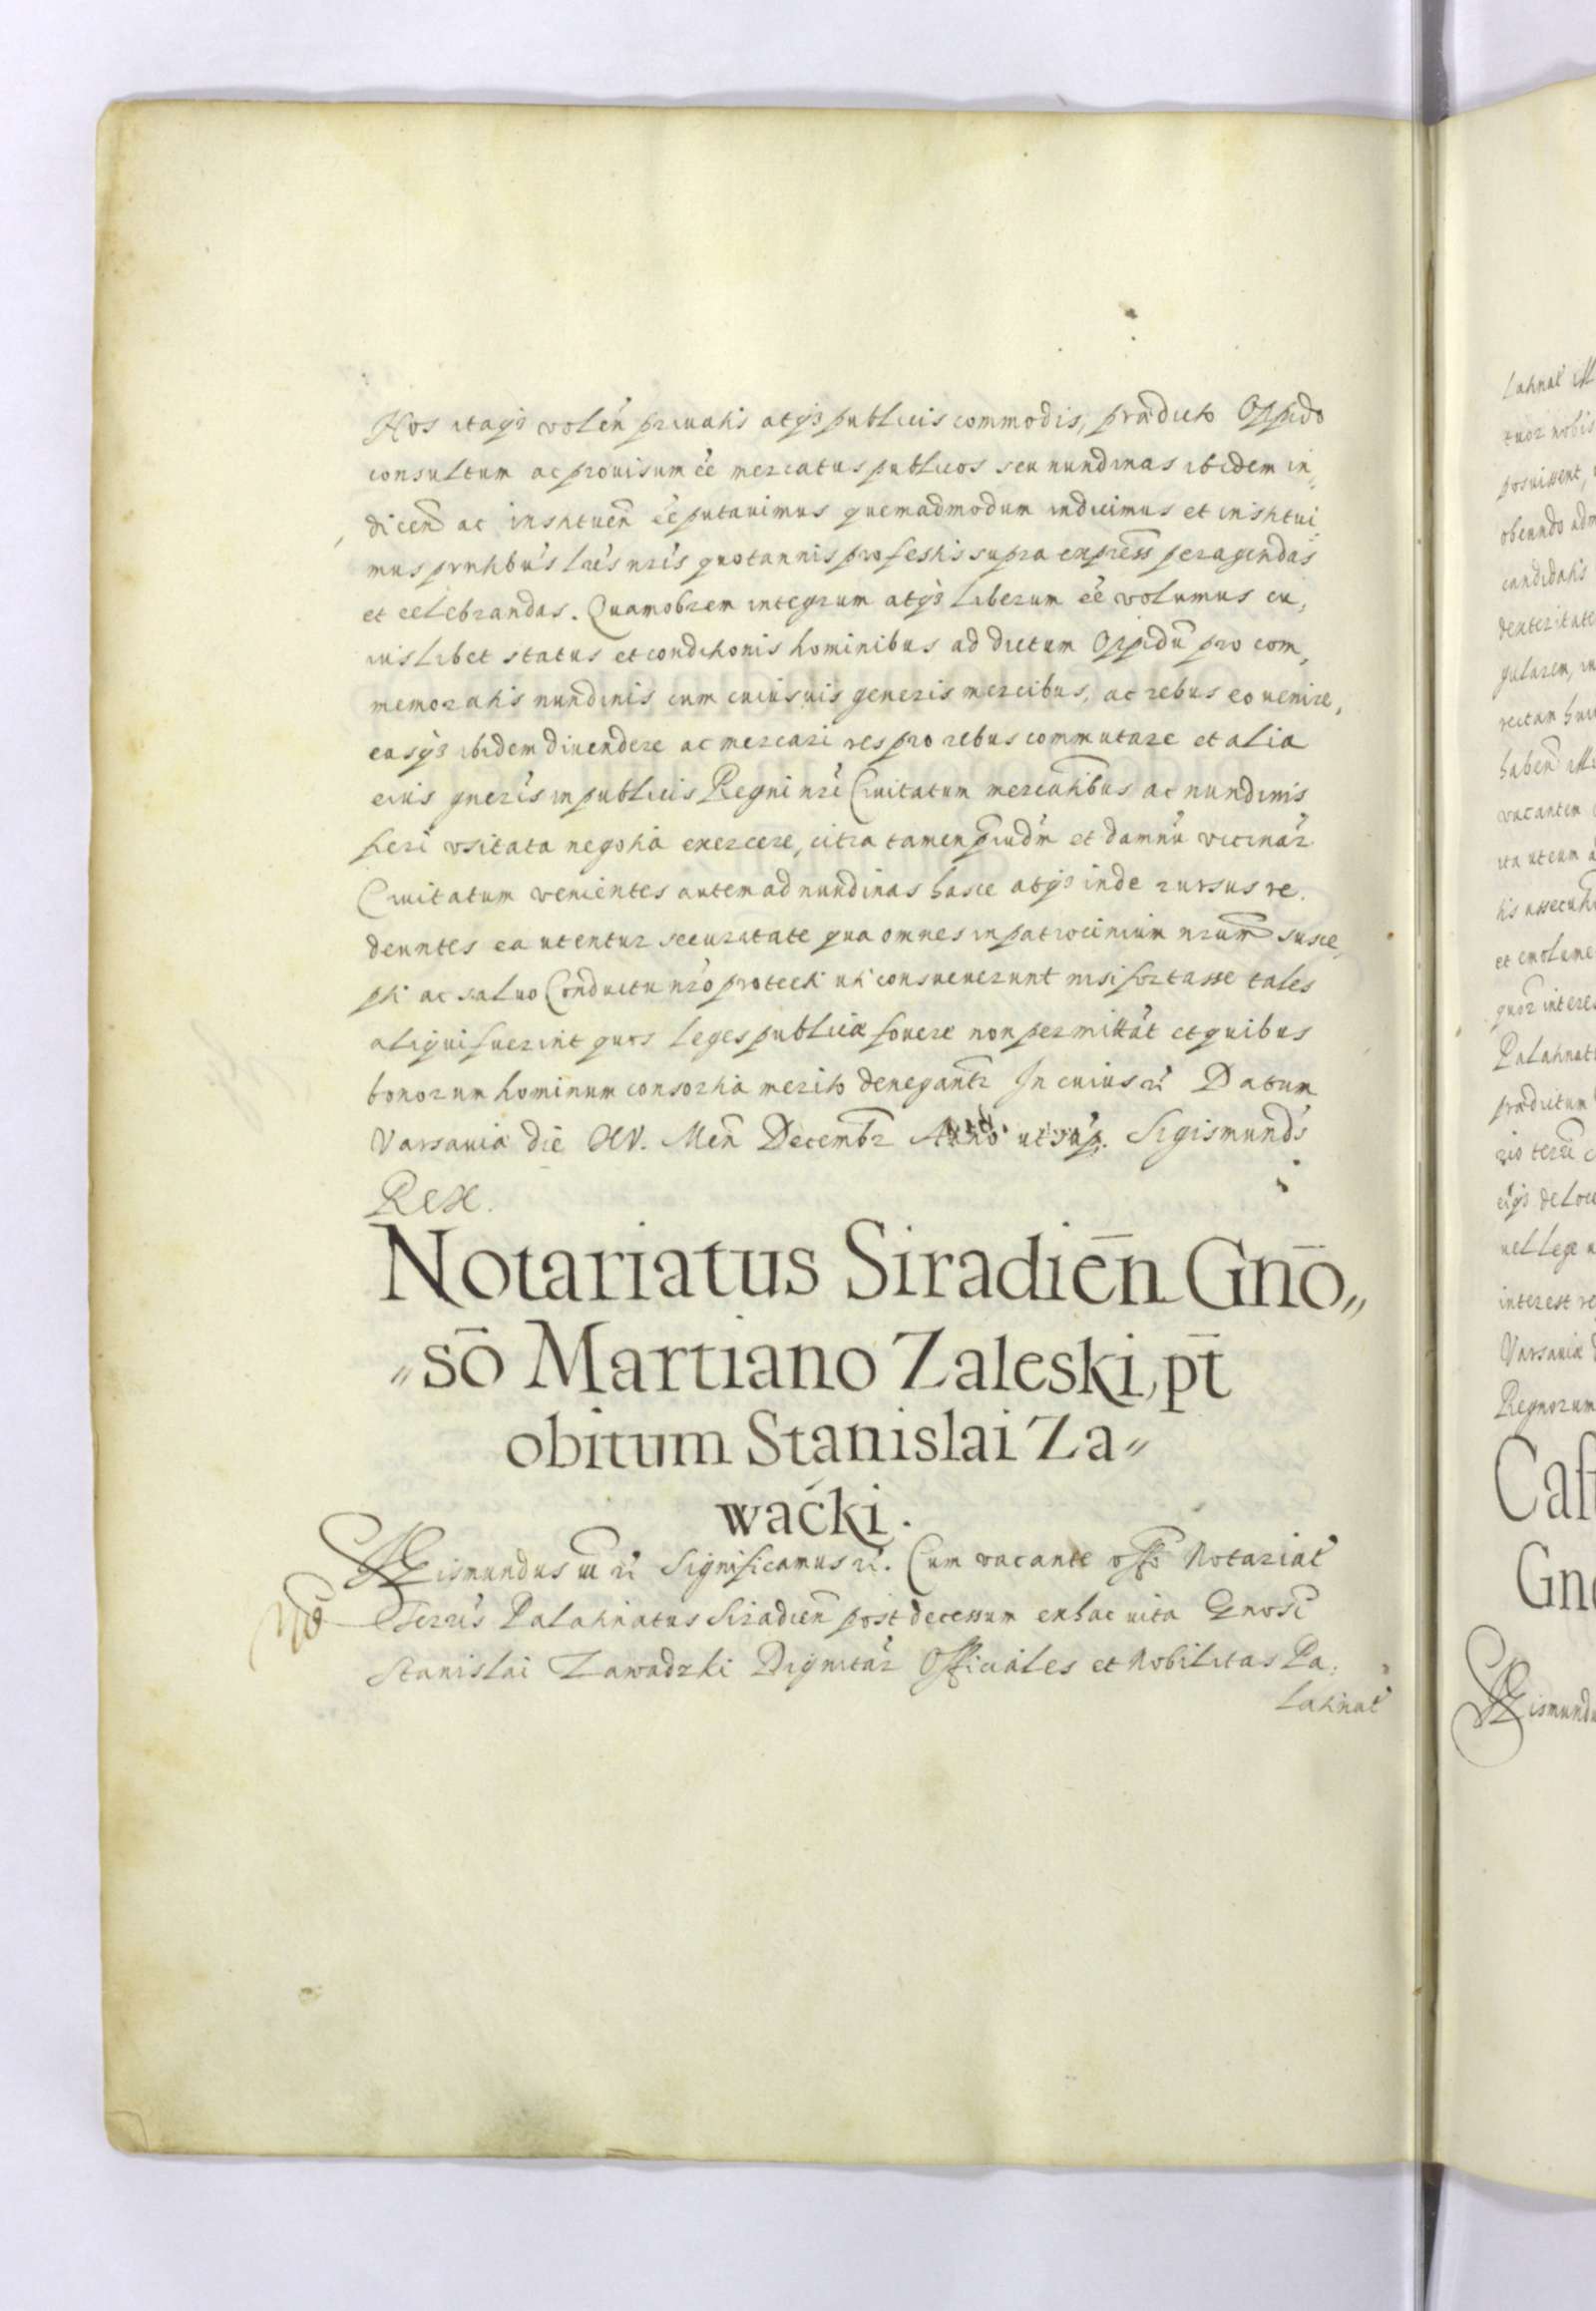 Nos itaq3 volen̄ priuatis atq3 publicis commodis, prædicto Oppido
consultum ac prouisum ēe mercatus publicos seu nundinas ibidem in,,
dicen̄d ac instituen̄ ēe putauimus quemadmodum indicimus et institui,,
mus pn̄tibus lr̄is nr̄is quotannis pro festis supra express̄ peragendas
et celebrandas. Quamobrem integrum atq3 liberum ēe volumus cu,
iuslibet status et conditionis hominibus ad dictum Oppidū pro com,
memoratis nundinis cum cuiusuis generis mercibus, ac rebus eo uenire,
easq3 ibidem diuendere ac mercari res pro rebus commutare et alia
eius gn̄eris in publicis Regni nr̄i Ciuitatum mercatibus ac nundinis
fieri vsitata negotia exercere, citra tamen p̄iudm̄ et damnū vicinar̄
Ciuitatum venientes autem ad nundinas hasce atq3 inde rursus re.
deuntes ea utentur securitate qua omnes in patrocinium nr̄um susce,
pti ac saluo Conductu nr̄o protecti uti consueuerunt nisi fortasse tales
aliqui fuerint quos leges publicæ fouere non permittāt et quibus
bonorum hominum consortia merito denegantr̄ In cuius rī Datum
Varsauiæ die XV. Men̄ Decembr̄ Anno ut sup̄. Sigismunds̄
Rex.
Notariatus Siradien̄ Gnō,,
,,sō Martiano Zaleski, pt̄
obitum Stanislai Za,,
waćki.
Sigismundus III rī Significamus rī. Cum vacante offō Notariat̄
Terrīs Palatinatus Siradien̄ post decessum ex hac uita Gnosī
Stanislai Zawadzki Dignitār Officiales et Nobilitas Pa,
latinat̄
Latinat̄
tuor nobis
posuissent,
obeundo
candidatis
dexteritate
gularem, in
haben̄
vacantem
ita ut eum
et emolume
Palatinat
prædictum
interest re
Varsauiæ
Regnorum
Cast
Gn
Sigismundu